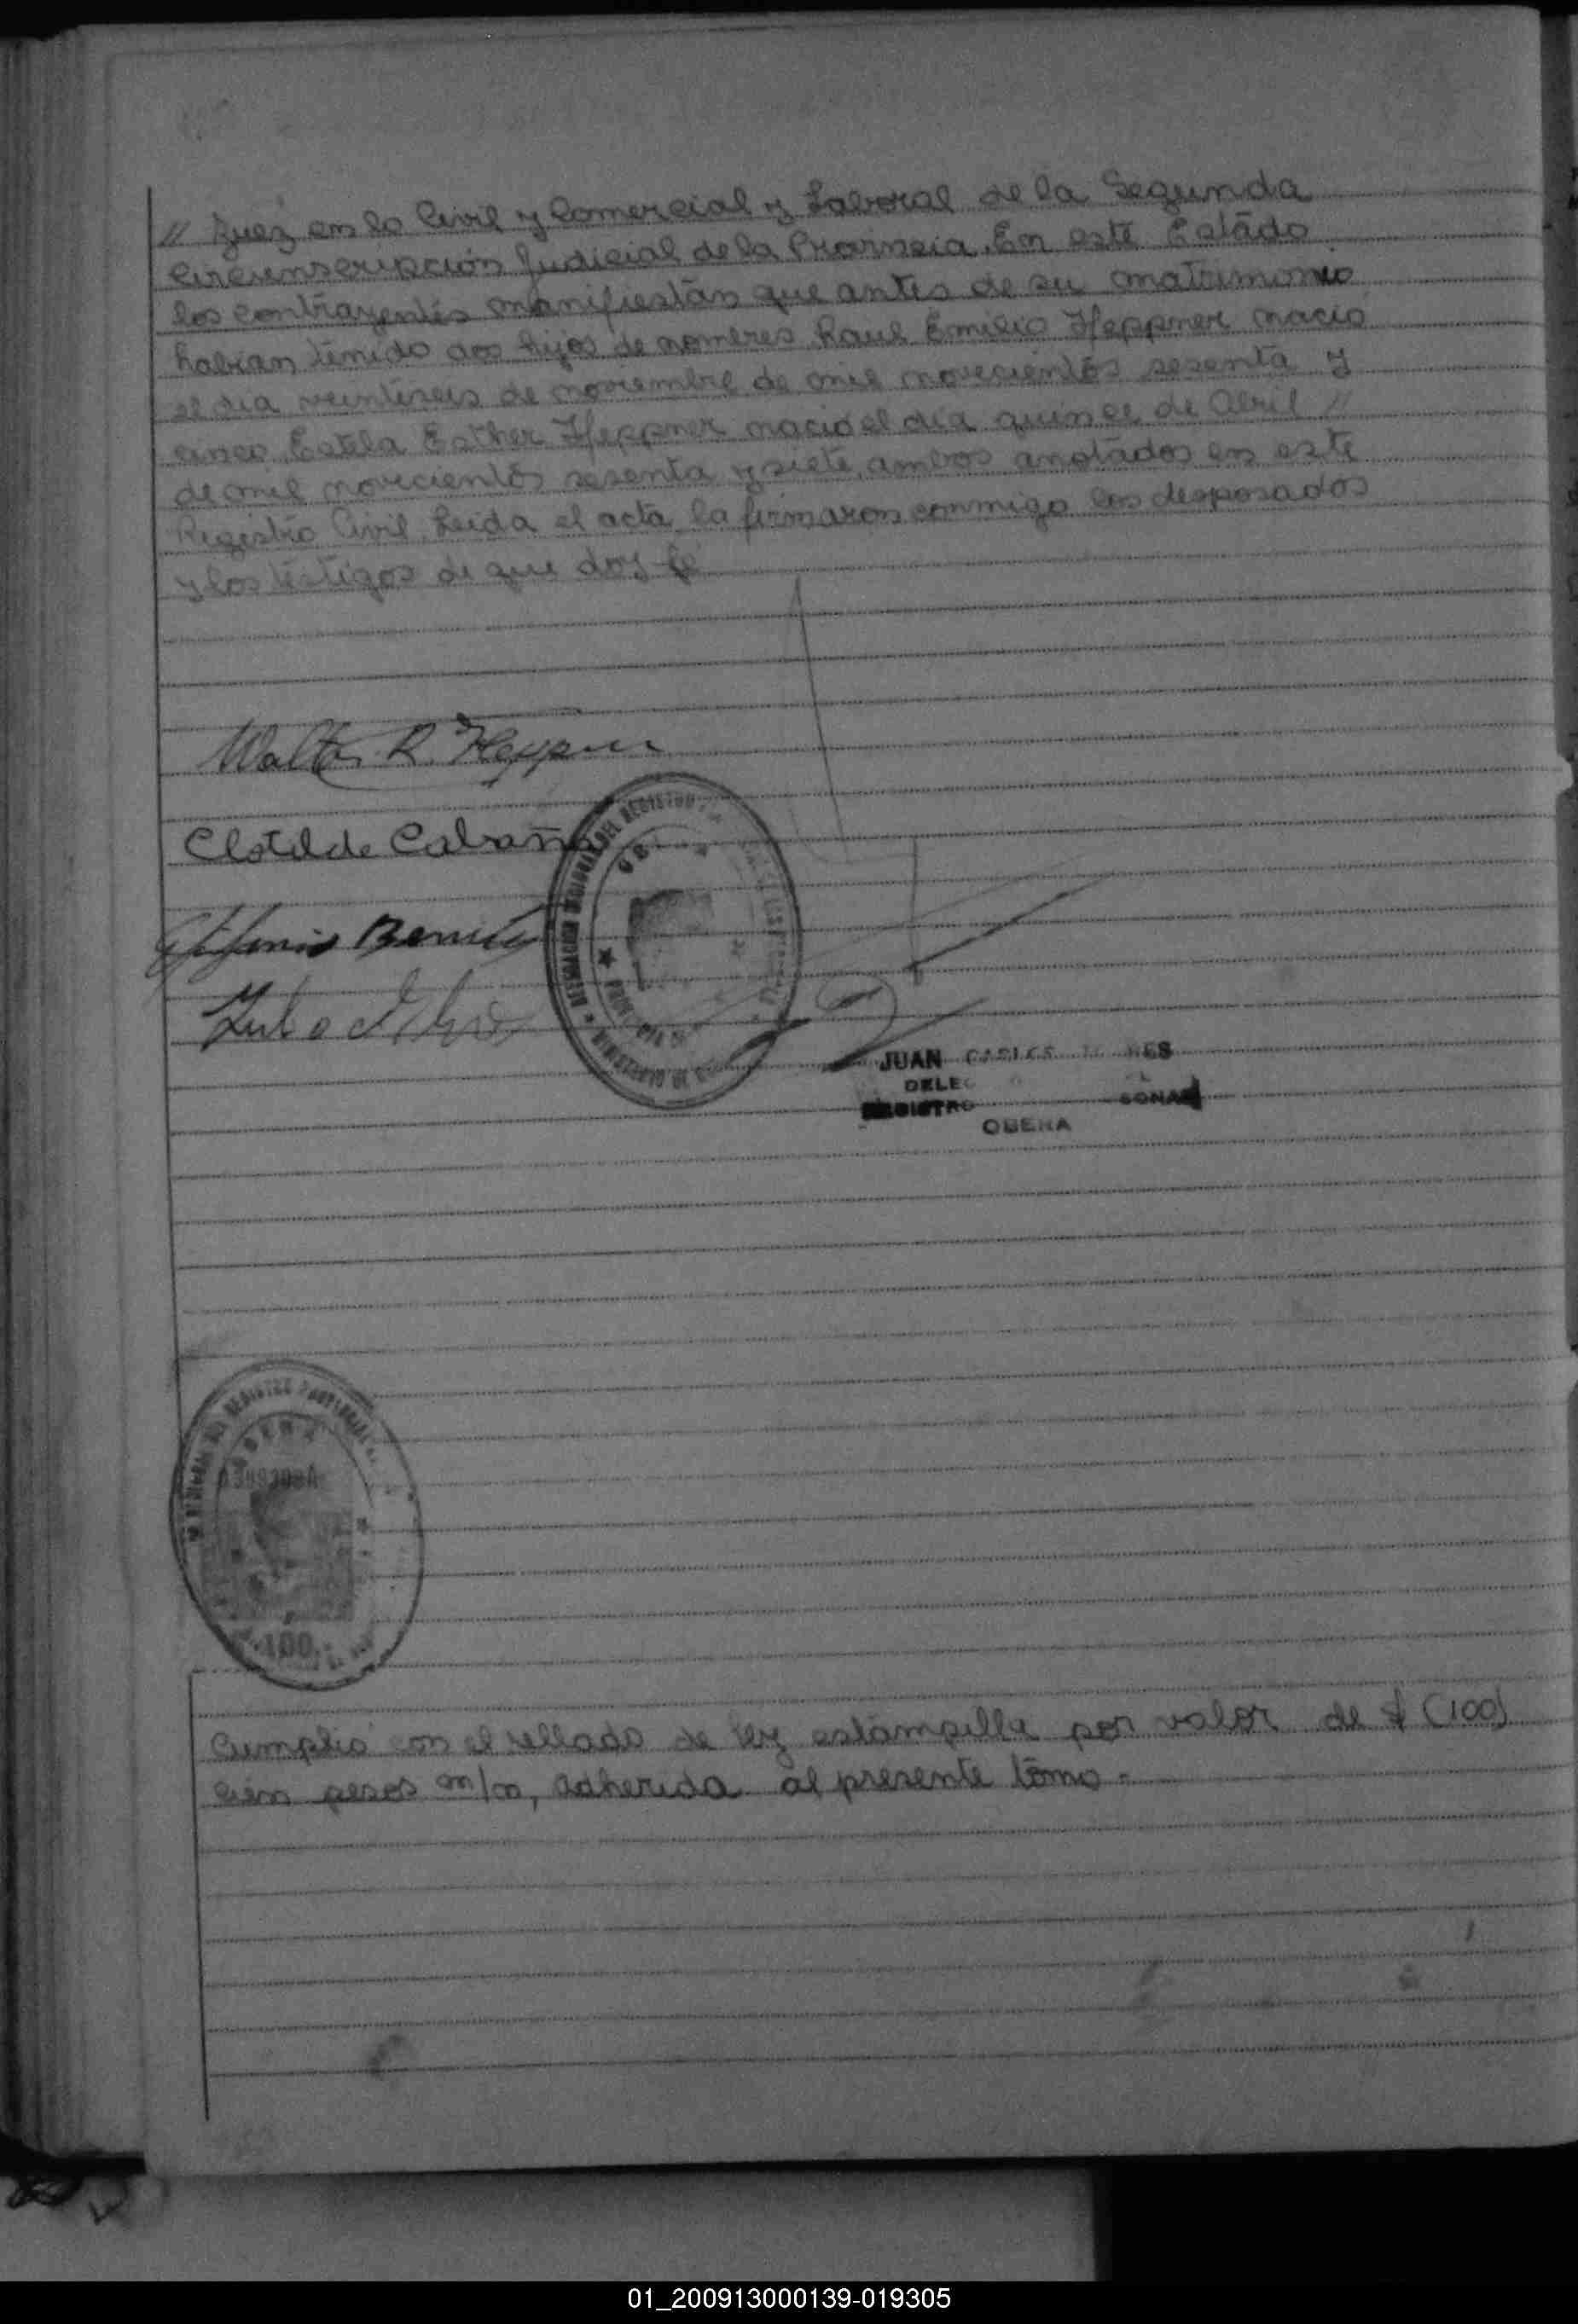 // Juez en lo Civil y Comercial y Laboral de la Segunda
Circunscripción Judicial de la Provincia. En este Estado
los contrayentes manifiestan que antes de su matrimonio
habian tenido dos hijos de nombres Raul Emilio Heppner nacio
el dia veintiseis de noviembre de mil novecientos sesenta y
cinco Estela Esther Heppner nacio el dia quince de Abril //
de mil novecientos sesenta y siete, ambos anotados en este
Registro Civil. Leida el acta, la firmaron conmigo los desposados
y los testigos de que doy fe
Walter R. Heppner
Clotilde Cabaña
Benitez
JUAN CARLOS
DELEG
REGISTRO
OBERA
OBERA
100
Cumplió con el sellado de ley estampilla por valor de $ (100)
cien pesos m/n, adherida al presente tomo.-
01_200913000139-019305